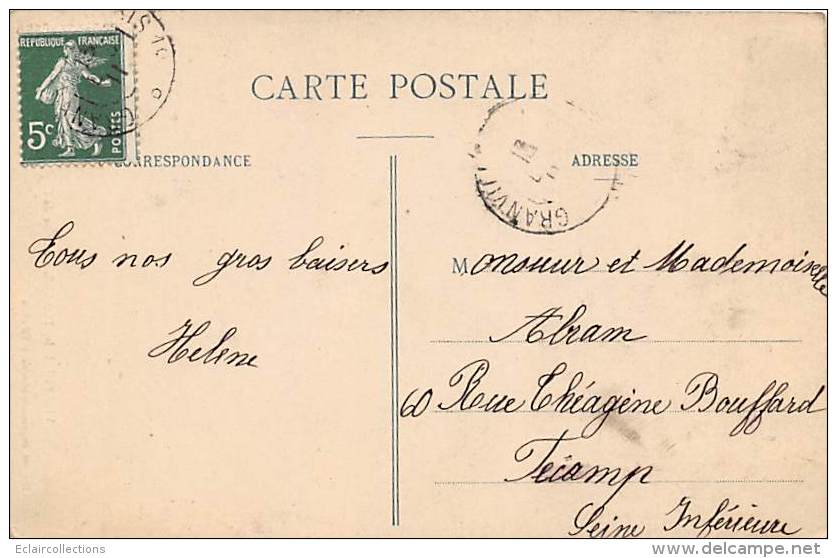 REPUBLIQUE FRANÇAISE
5c
POSTES
CARTE POSTALE
CORRESPONDANCE
ADRESSE
GRANVIL
Tous nos gros baisers
Helene
Monsieur et Mademoiselle
Abram
60 Rue Théagène Bouffard
Fécamp
Seine Inférieure
Eclaircollections
www.delcampe.net